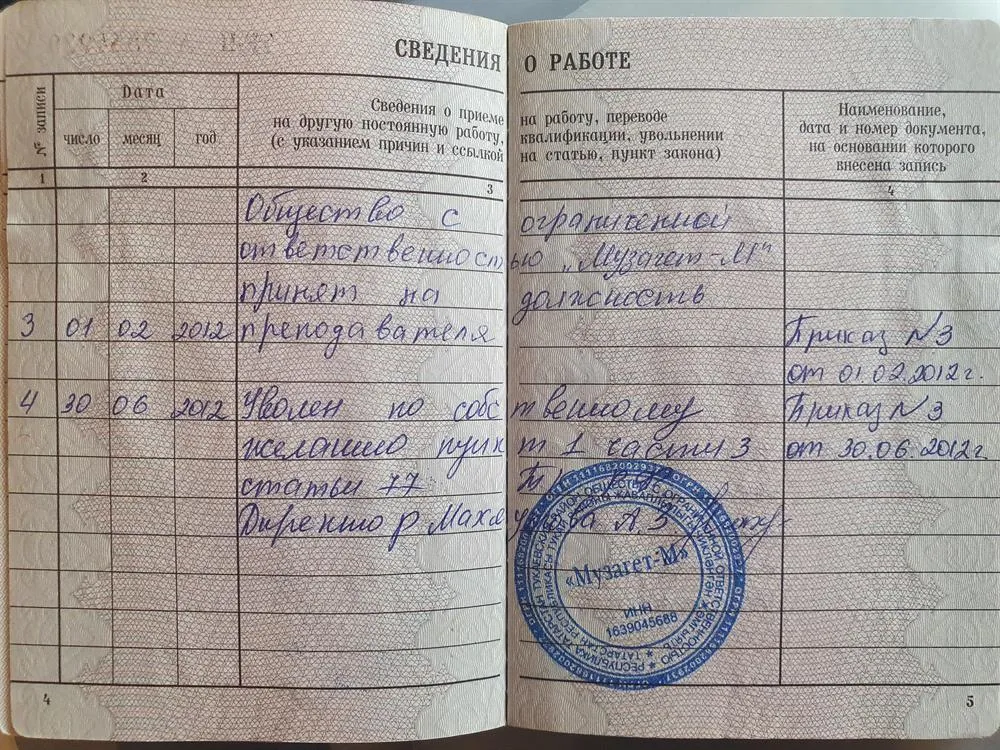 СВЕДЕНИЯ О РАБОТЕ
№ записи
Дата
число
месяц
год
Сведения о приеме
на другую постоянную работу,
(с указанием причин и ссылкой
на работу, переводе
квалификации, увольнении
на статью, пункт закона)
Наименование,
дата и номер документа,
на основании которого
внесена запись
1 2 3 4
Общество с ограниченной
ответственностью „Музагет-М“
принят на должность
3 01 02 2012 преподавателя Приказ №3
от 01.02.2012 г.
4 30 06 2012 Уволен по собственному Приказ №3
желанию пункт 1 части 3 от 30.06.2012 г.
статьи 77
А.З
«Музагет-М»
ИНН
1639045688
4
5